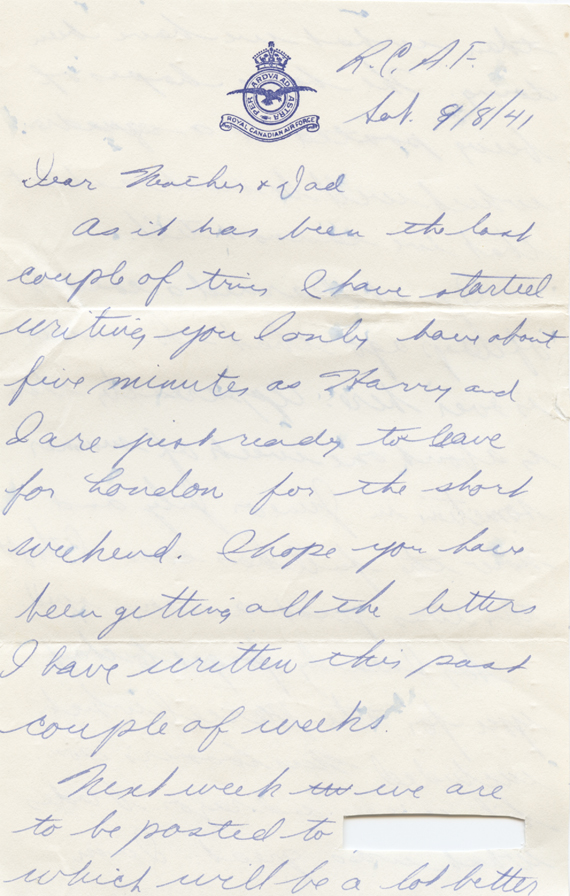 PER ARDVA AD ASTRA
ROYAL CANADIAN AIR FORCE
R.C.A.F.
Sat. 9/8/41
Dear Mother & Dad
As it has been the last
couple of times I have started
writing you I only have about
five minutes as Harry and
I are just ready to leave
for London for the short
weekend. I hope you have
been getting all the letters
I have written this past
couple of weeks.
Next week we are
to be posted to
which will be a lot better